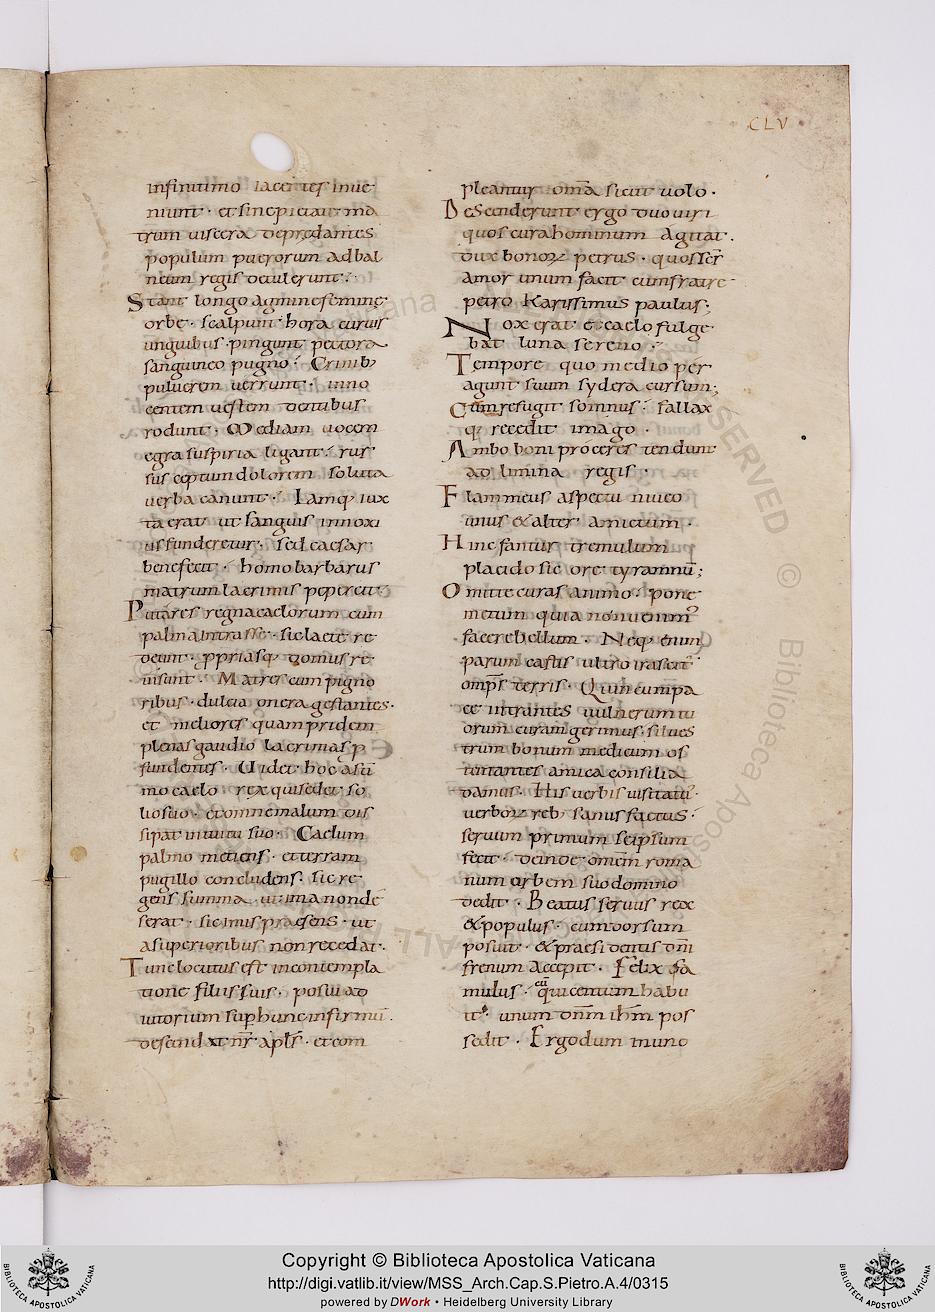 CLV
infinitimo lacertes inue
niunt · et sine pietate ma
trum uiscera depredantes
populum puerorum ad bal
neum regis detulerunt ·
Stant longo agmine feminę
orbę · scalpunt hora curuis
unguibus · pingunt pectora
sanguineo pugno · Crinib;
puluerem uerrunt · inno
centem uestem dentibus
rodunt · Mediam uocem
egra suspiria ligant · rur
sus ceptum dolorem soluta
uerba canunt · Iamq; iux
ta erat ut sanguis innoxi
us funderetur · sed caesar
benefecit · homo barbarus
matrum lacrimis pepercit
Putares regna caelorum cum
palma intrasse · sic laete re
deunt · ppriasq; domus re
uisunt · Matres cum pigno
ribus · dulcia onera gestantes ·
et meliores quam pridem
plenas gaudio lacrimas p
fundentes · Uidet hoc a sū
mo caelo rex qui sedet so
lio suo · et omne malum dis
sipat intuitu suo · Caelum
palmo metiens · et terram
pugillo concludens · sic re
gens summa ut ima non de
serat · sic imis praesens · ut
a superioribus non recedat ·
Tunc locutus est in contempla
tione filiis suis · posui ad
iutorium sup hunc infirmū ·
descendat nr̄ apl̄s · et com
pleantur om̄a sicut uolo ·
Descenderunt ergo duo uiri
quos cura hominum agitat ·
dux bonoꝝ petrus · quos fer
amor unum facit cum fratre
petro Karissimus paulus ;
Nox erat et caelo fulge
bat luna sereno ·
Tempore quo medio per
agunt suum sydera cursum ;
Cum refugit somnus · fallax
q; recedit imago ·
Ambo boni proceres tendunt
ad limina regis ·
Flammeus aspectu niueo
unus & alter amictum ·
Hinc fantur tremulum
placido sic ore tyrannū ;
Omitte curas animo · pone
metum quia non uenim
facere bellum · Neq; enim
parum castis ultro irascit
omp̄s terris · Qui n cum pa
ce intrantes uulnerum tu
orum curam gerimus · silues
trum bonum medicum os
tentantes amica consilia
damus · His uerbis uisitatū ·
uerboꝝ reb; sanus factus ·
seruum primum seipsum
fecit · deinde omēm roma
num orbem suo domino
dedit · Beatus seruus rex
& populus · cum dorsum
posuit · & praesidentis dn̄i
frenum accepit · Felix fa
mulus · qui centum habu
it unum dn̄m ih̄m pos
sedit · Ergo dum munc
Copyright © Biblioteca Apostolica Vaticana
http://digi.vatlib.it/view/MSS_Arch.Cap.S.Pietro.A.4/0315
powered by DWork • Heidelberg University Library